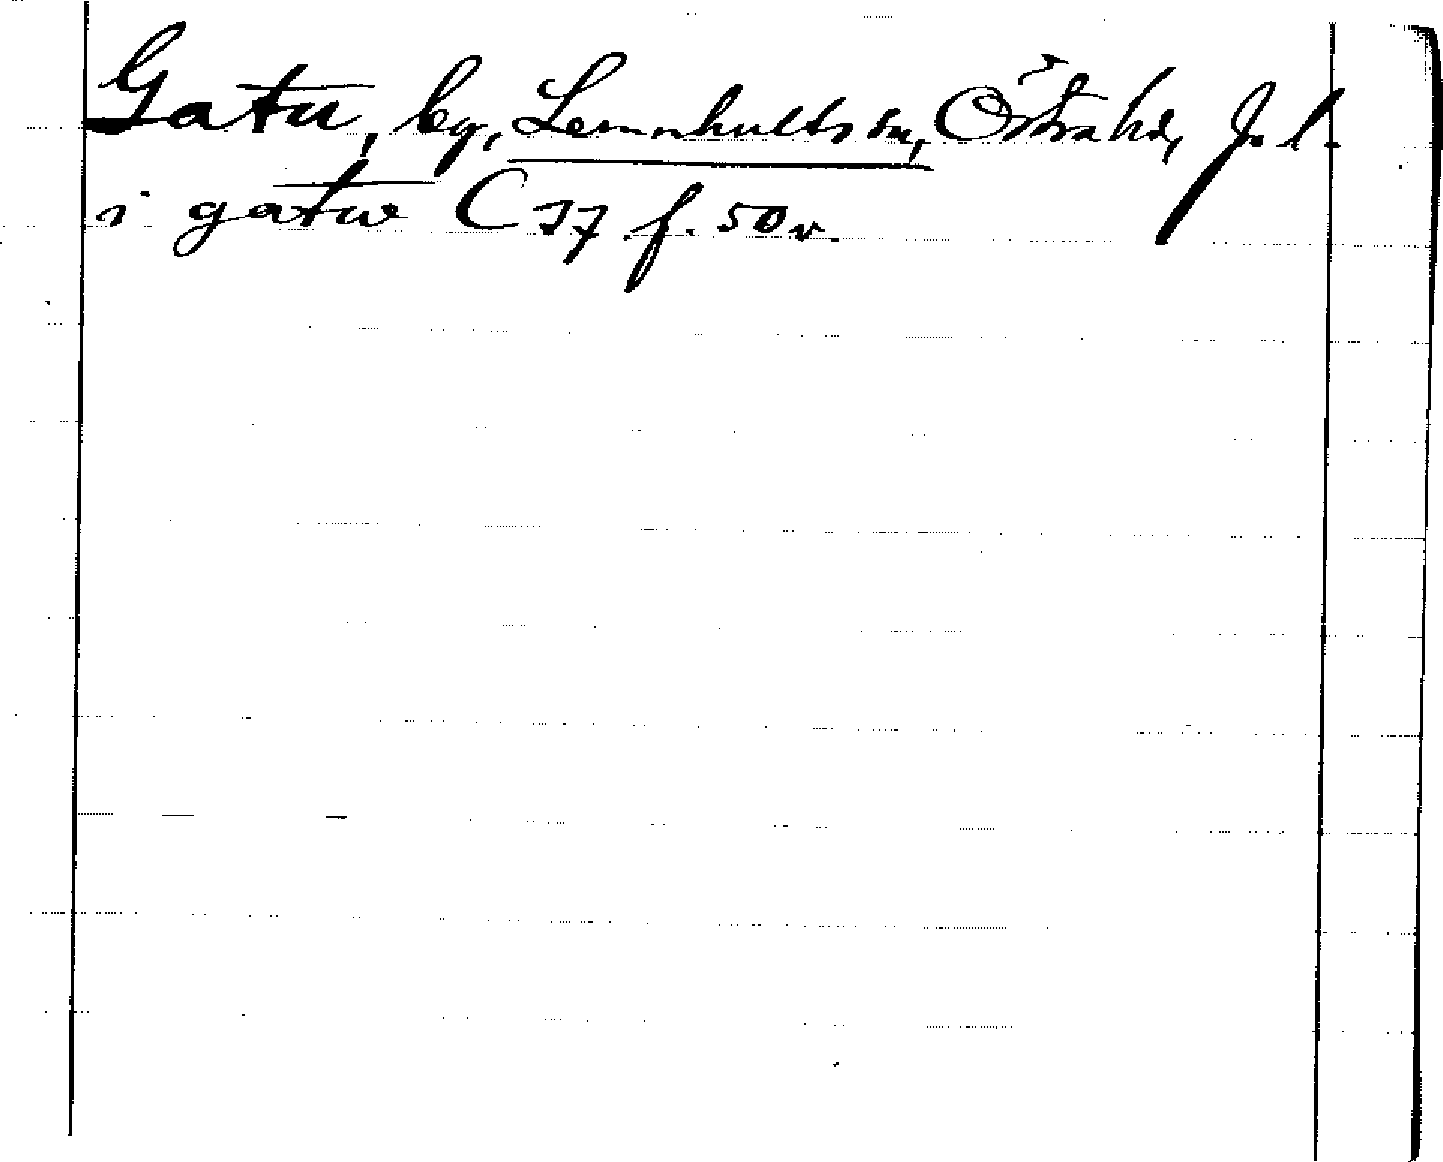 Gatu, by, Lemnhults sn, Östra hd, J. l.
i gatw C 37 f. 50 v.